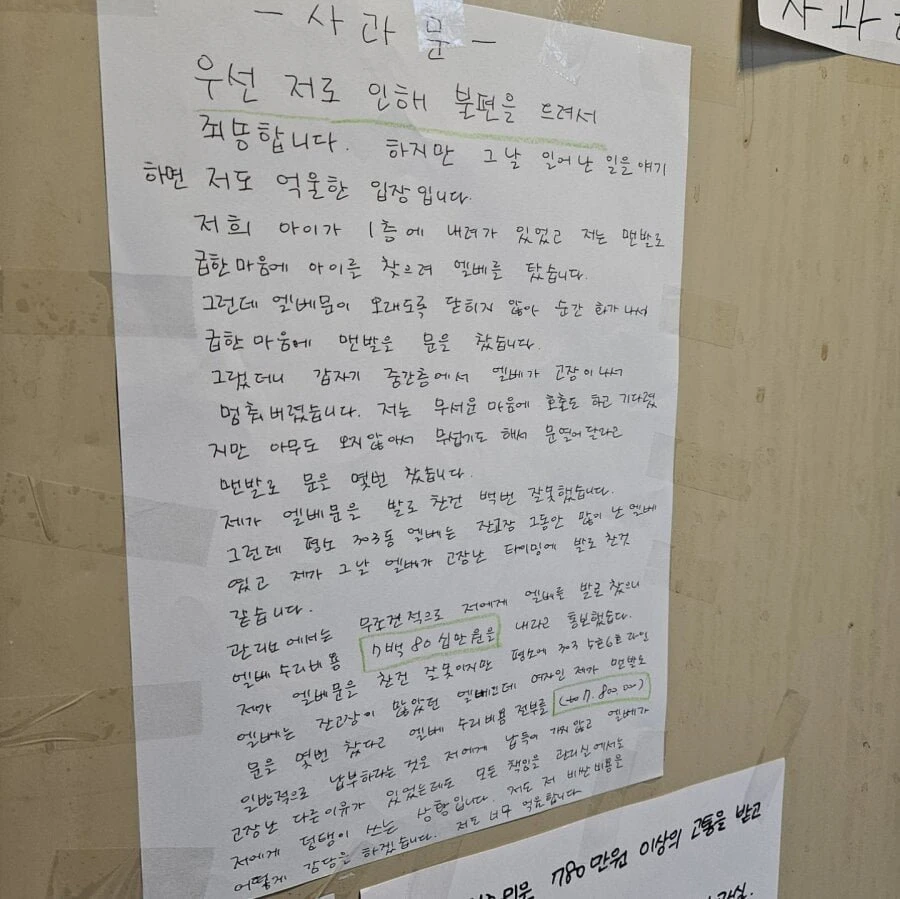 - 사 과 문 -
우선 저로 인해 불편을 드려서
죄송합니다. 하지만 그날 일어난 일을 얘기
하면 저도 억울한 입장입니다.
저희 아이가 1층에 내려가 있었고 저는 맨발로
급한 마음에 아이를 찾으려 엘베를 탔습니다.
그런데 엘베문이 오래도록 닫히지 않아 순간 화가 나서
급한 마음에 맨발을 문을 찼습니다.
그랬더니 갑자기 중간층에서 엘베가 고장이 나서
멈춰버렸습니다. 저는 무서운 마음에 호출도 하고 기다렸
지만 아무도 오지않아서 무섭기도 해서 문열어달라고
맨발로 문을 몇번 찼습니다.
제가 엘베문을 발로 찬건 백번 잘못했습니다.
그런데 평소 303동 엘베는 잔고장 그동안 많이 난 엘베
였고 제가 그날 엘베가 고장난 타이밍에 발로 찬것
같습니다.
관리소에서는 무조건적으로 저에게 엘베를 발로 찼으니
엘베 수리비용 7백 80십만원을 내라고 통보했습니다.
제가 엘베문을 찬건 잘못이지만 평소에 303 5호6호라인
엘베는 잔고장이 많았던 엘베인데 여자인 제가 맨발로
문을 몇번 찼다고 엘베 수리비용 전부를
일방적으로 납부하라는 것은 저에게 납득이 가지 않고 엘베가
고장난 다른이유가 있었는데도 모든 책임을 관리실에서는
저에게 덤탱이 쓰는 상황입니다. 저도 저 비싼비용을
어떻게 감당을 하겠습니다. 저도 너무 억울합니다
사과
780만원 이상의 고통을 받고